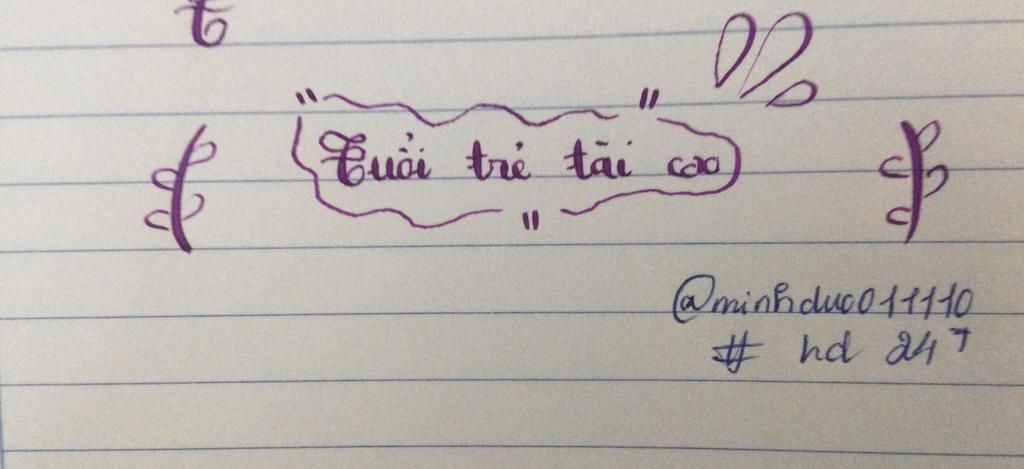 Tuổi trẻ tài cao
@minhduc011110
# hd 247